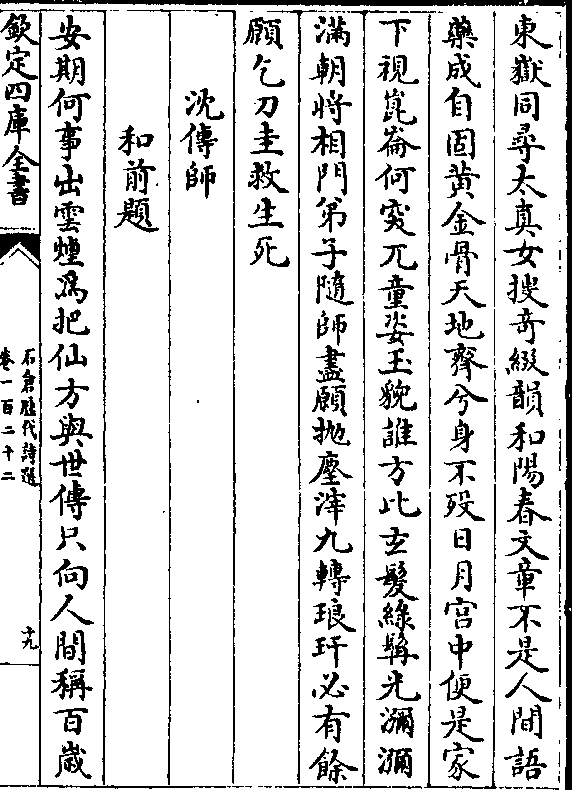 東嶽同尋太真女搜竒綴韻和陽春文章不是人間語
藥成自固黄金骨天地齊兮身不歿日月宫中便是家
下視崑崙何突兀童姿玉貌誰方比𤣥髮綠髯光瀰瀰
滿朝將相門弟子隨師盡願抛塵滓九轉琅玕必有餘
願乞刀圭救生死
沈傳師
和前題
安期何事出雲煙爲把仙方與世傳只向人間稱百歳
欽定四庫全書
石倉歴代詩選
卷一百二十二
十九